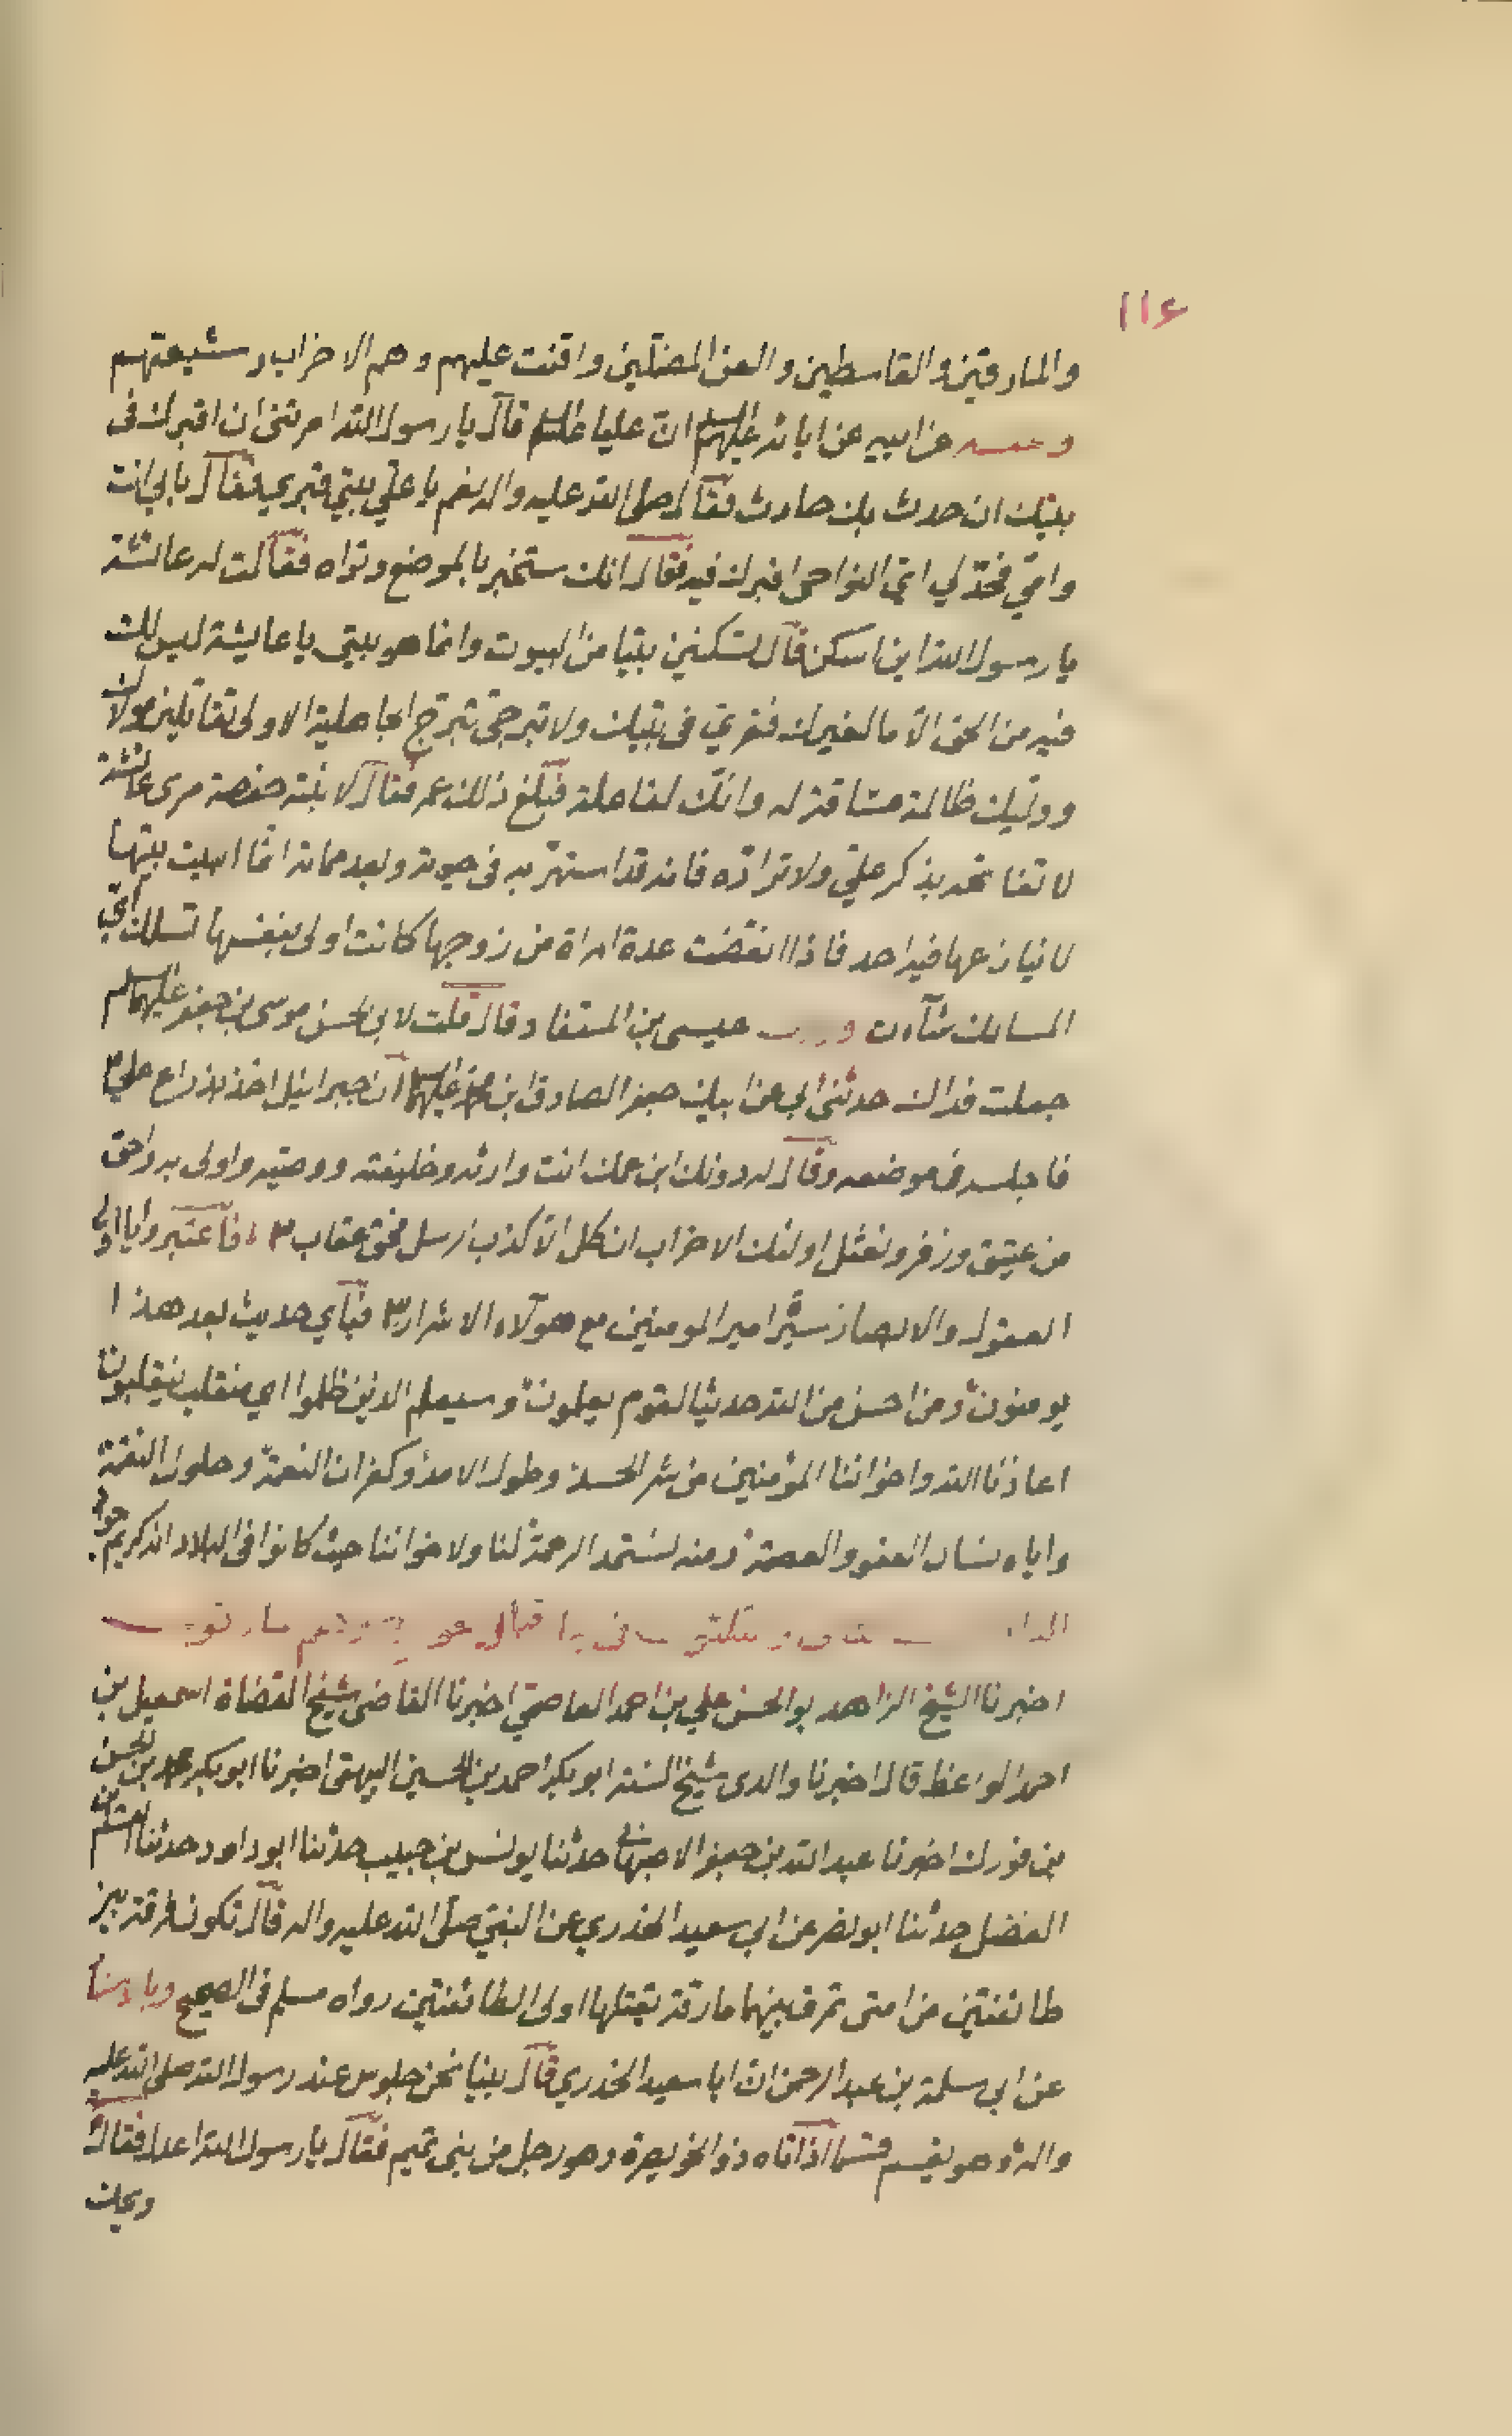 ١١٤
والمارقين والقاسطين والعن المضلين واقنت عليهم وهم الاحزاب وشيعتهم
وعنه عن ابيه عن ابائه عليهم السلام ان عليا عليه السلام قال يا رسول الله امرتني ان اقبرك في
بيتك ان حدث بك حادث فقال صلى الله عليه واله نعم يا علي بيتي قبري فقال بابي انت
وامي فحد لي اي النواحي اقبرك فيه فقال انك ستخبر بالموضع وتراه فقالت له عائشة
يا رسول الله اين اسكن قال تسكنين بيتا من البيوت وانما هو بيتي يا عايشة ليس لك
فيه من الحق الا ما لغيرك فقري في بيتك ولا تبرجي تبرج الجاهلية الاولى تقاتلين مولاك
ووليك ظالمة مشاقة له وانك لفاعلة فبلغ ذلك عمر فقال لابنته حفصة مري عائشة
لا تفاتحه بذكر علي ولا تراده فانه قد استهتر به في حيوته وبعد مماته انما البيت بيتها
لا ينازعها فيه احد فاذا انقضت عدة امراة من زوجها كانت اولى بنفسها تسلك اي
المسالك شآءت عيسى بن المستفاد قال قلت لابي الحسن موسى بن جعفر عليهما السلام
جعلت فداك حدثني ابي عن ابيك جعفر الصادق ابن محمد عليهما السلام ان جبرائيل اخذ بذراع علي
فاجلسه في موضعه وقال له دونك ابن عمك انت وارثه وخليفته ووصيه واولى به واحق
من عتيق وزفر ونعثل اولئك الاحزاب ان كل الا كذب الرسل فحق عقاب فاعتبروا يا اولي
العقول والابصار سير امير المومنين مع هولآء الاشرار فبأي حديث بعد هذا
يومنون ومن احسن من الله حديثا لقوم يعلمون وسيعلم الذين ظلموا اي منقلب ينقلبون
اعاذنا الله واخواننا المؤمنين من شر الحسد وطول الامد وكفران النعمة وحلول النقمة
واياه نسال العفو والعصمة ومنه نستمد الرحمة لنا ولاخواننا حيث كانوا في البلاد انه كريم جواد
اخبرنا الشيخ الزاهد بو الحسن علي بن احمد العاصمي اخبرنا القاضي شيخ القضاة اسمعيل بن
احمد الواعظ قال اخبرنا والدي شيخ السنة ابو بكر احمد بن الحسين البيهقي اخبرنا ابو بكر محمد بن الحسن
بن فورك اخبرنا عبد الله بن جعفر الاصبهاني حدثنا يونس بن حبيب حدثنا ابو داود حدثنا القسم بن
الفضل حدثنا ابو نضر عن ابي سعيد الخدري عن النبي صلى الله عليه واله قال تكون فرقة بين
طائفتين من امتي تمرق بينهما مارقة يقتلها اولى الطائفتين رواه مسلم في الصحيح
عن ابي سلمة بن عبد الرحمن ان ابا سعيد الخدري قال بينا نحن جلوس عند رسول الله صلى الله عليه
واله وهو يقسم قسما اذ اتاه ذو الخويصرة وهو رجل من بني تميم فقال يا رسول الله اعدل فقال
ويحك